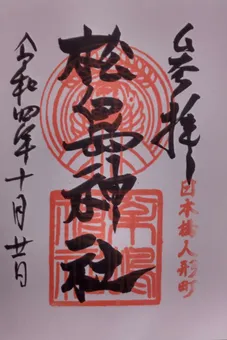 奉拝
日本橋人形町
松島神社
令和四年十月廿日